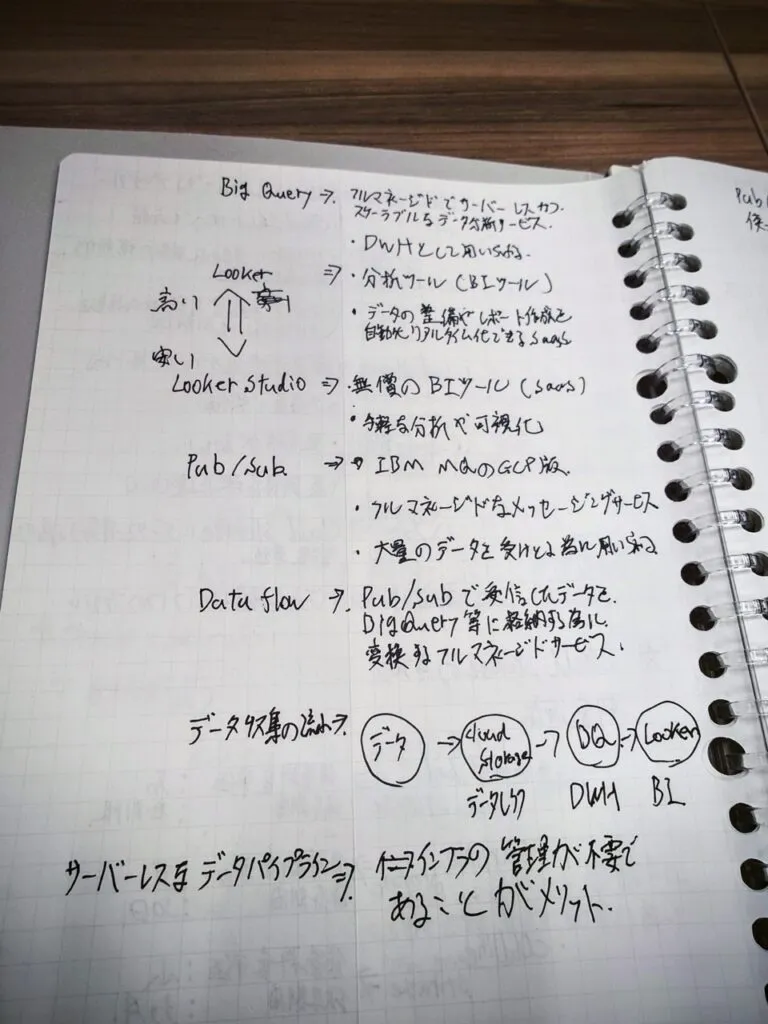 Big Query ⇒ フルマネージドでサーバーレスかつ
スケーラブルなデータ分析サービス.
・DWHとして用いられる.
Looker ⇒ ・分析ツール (BIツール)
高い
・データの整備やレポート作成を
自動化リアルタイム化できるSaaS
安い
Looker Studio ⇒ ・無償のBIツール (SaaS)
・手軽な分析や可視化
Pub/Sub ⇒ ・IBM MQのGCP版.
・フルマネージドなメッセージングサービス
・大量のデータを受けとる為に用いられる
Data flow ⇒ ・Pub/Subで受信したデータを.
BigQuery等に格納する為に.
変換するフルマネージドサービス.
データ収集の流れ⇒ データ → Cloud Storage → BQ → Looker
データレイク DWH BI
サーバーレスなデータパイプライン⇒ インフラの管理が不要で
あることがメリット.
Pub/